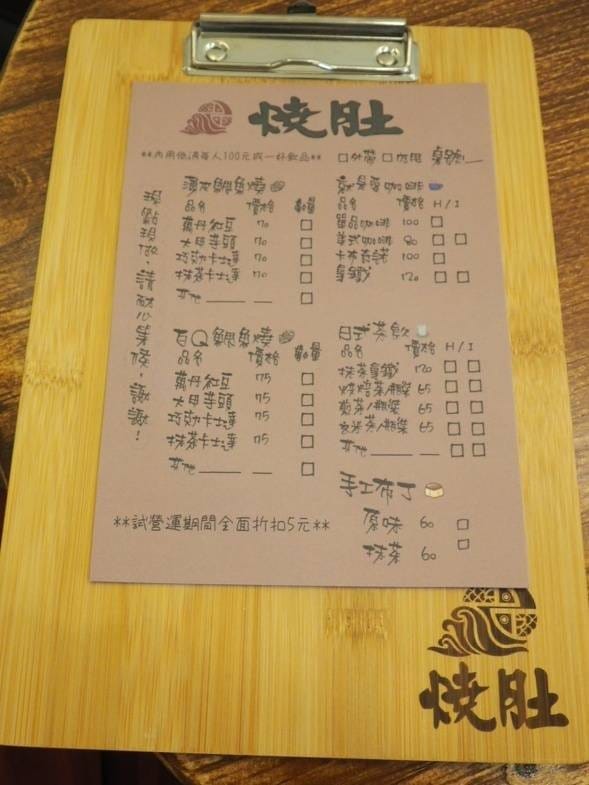 燒肚
**內用低消每人100元或一杯飲品** □外帶 □內用 桌號:__
現點現做,請耐心等候,謝謝!
薄皮鯛魚燒
品名 價格 數量
萬丹紅豆 70 □
大甲芋頭 70 □
巧克力卡士達 70 □
抹茶卡士達 70 □
其他____ __ □
QQ鯛魚燒
品名 價格 數量
萬丹紅豆 75 □
大甲芋頭 75 □
巧克力卡士達 75 □
抹茶卡士達 75 □
其他____ __ □
**試營運期間全面折扣5元**
就是愛咖啡
品名 價格 H/I
單品咖啡 100 □
美式咖啡 80 □ □
卡布奇諾 100 □
拿鐵 120 □ □
日式茶飲
品名 價格 H/I
抹茶拿鐵 120 □ □
煎茶/ 65 □ □
玄米茶/ 65 □ □
其他____ __ □ □
手工布丁
原味 60 □
抹茶 60 □
燒肚